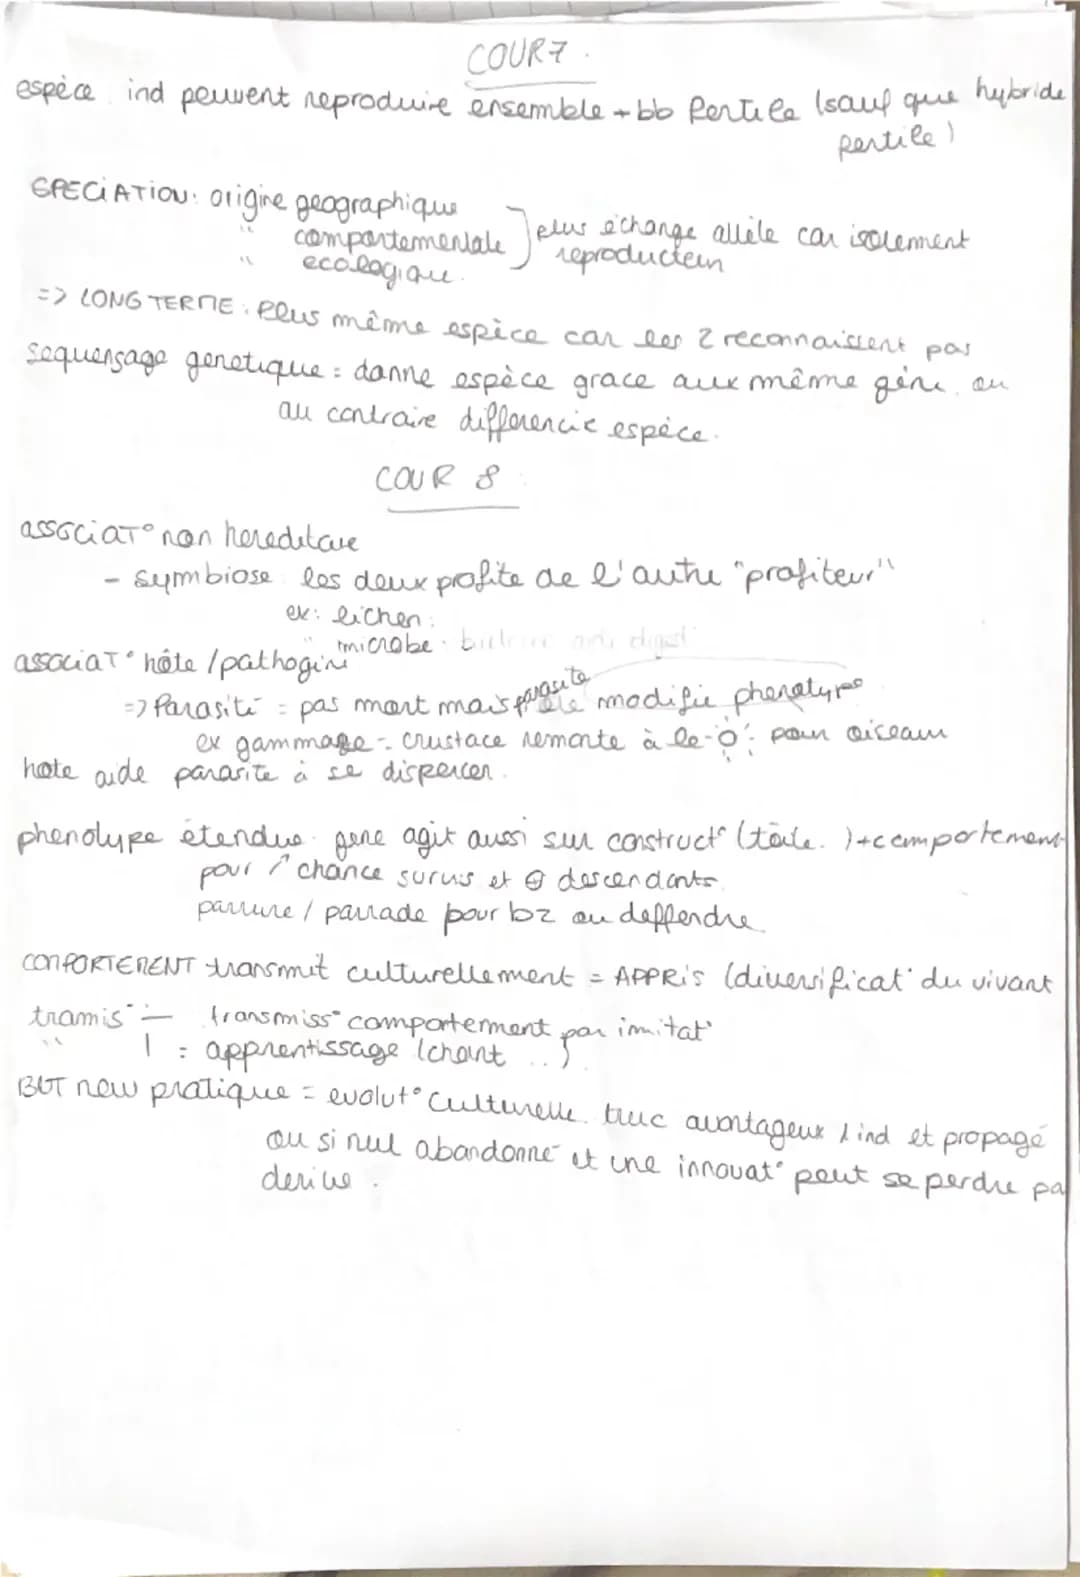 COUR7.
espèce ind peuvent reproduire ensemble + bb fertile (sauf que hybride
fertile)
SPECIATION: origine geographique
" comportementale ] plus échange allèle car isolement
" ecologique. reproducteur
=> LONG TERME: plus même espèce car les 2 reconnaissent pas
sequensage genetique = donne espèce grace aux même gène, ou
au contraire differencie espèce.
COUR 8
associat° non hereditaire
- symbiose les deux profite de l'autre "profiteur"
ex: lichen:
" microbe
associat° hôte / pathogène
=> Parasité = pas mort mais parasite modifie phenotype
ex gammare = crustace remonte à le pour oiseau
hote aide parasite à se disperser.
phenotype étendue gene agit aussi sur construct° (toile.) + comportement
pour ↗ chance survis et ⊕ descendants
parrure / parrade pour bz ou deffendre.
COMPORTEMENT transmit culturellement = APPRIS (diversificat° du vivant
tramis — transmiss° comportement par imitat°
" | : apprentissage (chant ..)
BUT new pratique = evolut° culturelle. truc avantageux ind et propagé
ou si nul abandonné et une innovat° peut se perdre pa
derive.